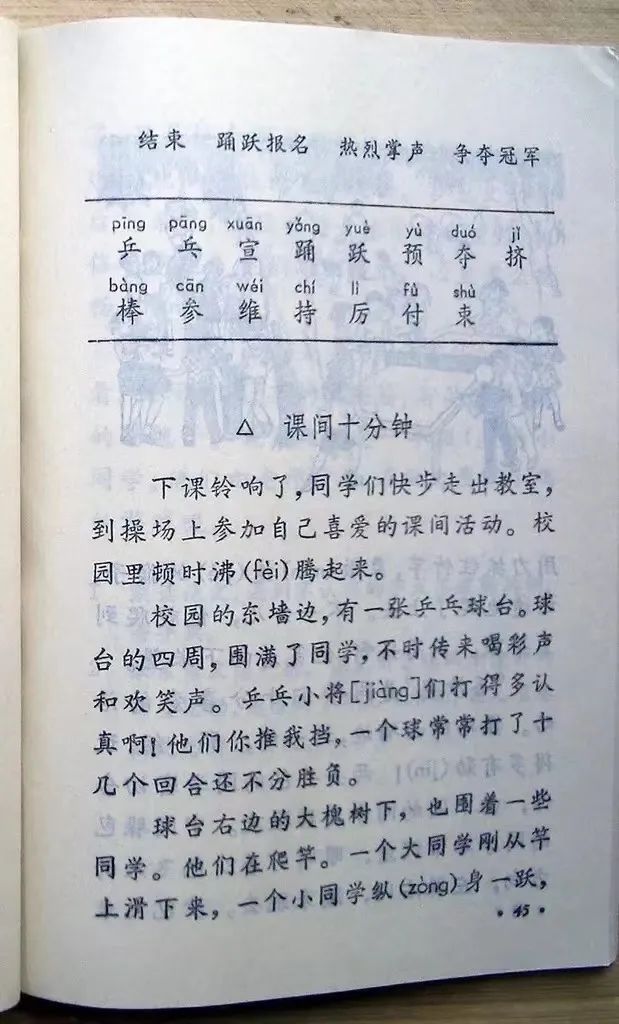 结束 踊跃报名 热烈掌声 争夺冠军
pīng pāng xuān yǒng yuè yù duó jǐ
乒 乓 宣 踊 跃 预 夺 挤
bàng cān wéi chí lì fù shù
棒 参 维 持 厉 付 束
△ 课间十分钟
下课铃响了，同学们快步走出教室，
到操场上参加自己喜爱的课间活动。校
园里顿时沸(fèi)腾起来。
校园的东墙边，有一张乒乓球台。球
台的四周，围满了同学，不时传来喝彩声
和欢笑声。乒乓小将[jiàng]们打得多认
真啊！他们你推我挡，一个球常常打了十
几个回合还不分胜负。
球台右边的大槐树下，也围着一些
同学。他们在爬竿。一个大同学刚从竿
上滑下来，一个小同学纵(zòng)身一跃，
• 45 •